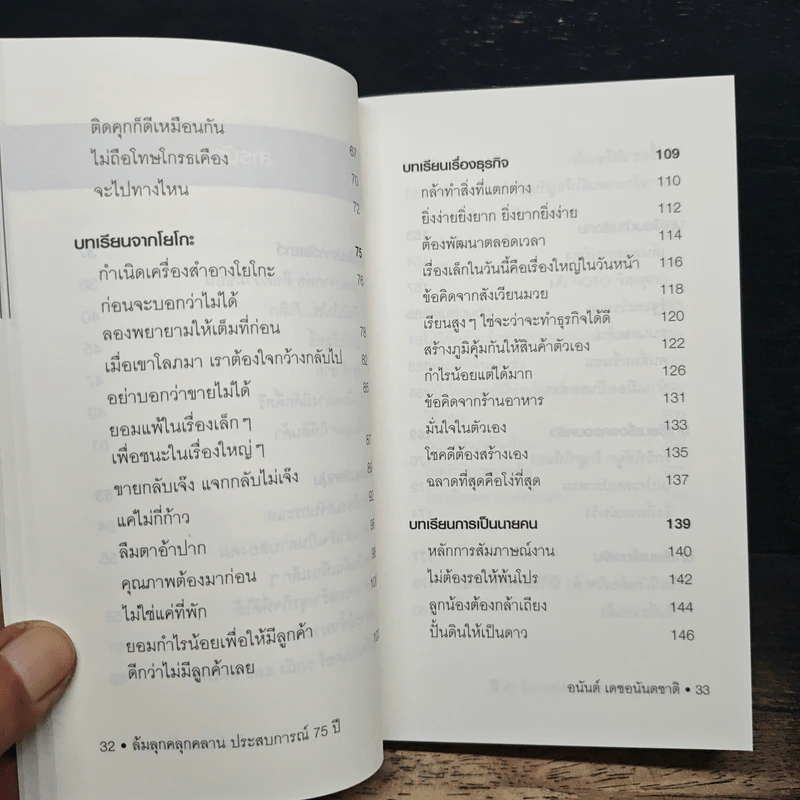 ติดคุกก็ดีเหมือนกัน 67
ไม่ถือโทษโกรธเคือง 70
จะไปทางไหน 72
บทเรียนจากโยโกะ 75
กำเนิดเครื่องสำอางโยโกะ 76
ก่อนจะบอกว่าไม่ได้
ลองพยายามให้เต็มที่ก่อน 78
เมื่อเขาโลภมา เราต้องใจกว้างกลับไป 82
อย่าบอกว่าขายไม่ได้ 85
ยอมแพ้ในเรื่องเล็กๆ
เพื่อชนะในเรื่องใหญ่ๆ 87
ขายกลับเจ๊ง แจกกลับไม่เจ๊ง 89
แค่ไม่กี่ก้าว 92
ลืมตาอ้าปาก 96
คุณภาพต้องมาก่อน 98
ไม่ใช่แค่ที่พัก
ยอมกำไรน้อยเพื่อให้มีลูกค้า
ดีกว่าไม่มีลูกค้าเลย
32 • ล้มลุกคลุกคลาน ประสบการณ์ 75 ปี
บทเรียนเรื่องธุรกิจ 109
กล้าทำสิ่งที่แตกต่าง 110
ยิ่งง่ายยิ่งยาก ยิ่งยากยิ่งง่าย 112
ต้องพัฒนาตลอดเวลา 114
เรื่องเล็กในวันนี้คือเรื่องใหญ่ในวันหน้า 116
ข้อคิดจากสังเวียนมวย 118
เรียนสูงๆ ใช่จะว่าจะทำธุรกิจได้ดี 120
สร้างภูมิคุ้มกันให้สินค้าตัวเอง 122
กำไรน้อยแต่ได้มาก 126
ข้อคิดจากร้านอาหาร 131
มั่นใจในตัวเอง 133
โชคดีต้องสร้างเอง 135
ฉลาดที่สุดคือโง่ที่สุด 137
บทเรียนการเป็นนายคน 139
หลักการสัมภาษณ์งาน 140
ไม่ต้องรอให้พ้นโปร 142
ลูกน้องต้องกล้าเถียง 144
ปั้นดินให้เป็นดาว 146
อนันต์ เดชอนันตชาติ • 33